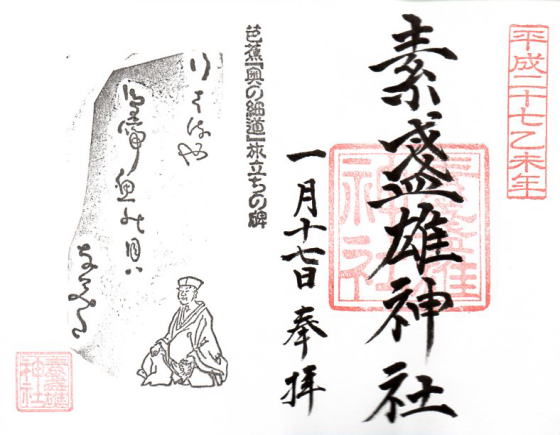 平成二十七乙未年
素盞雄神社
素盞雄神社
一月十七日 奉拝
芭蕉『奥の細道』旅立ちの碑
鳥啼魚の目ハ
素盞雄神社